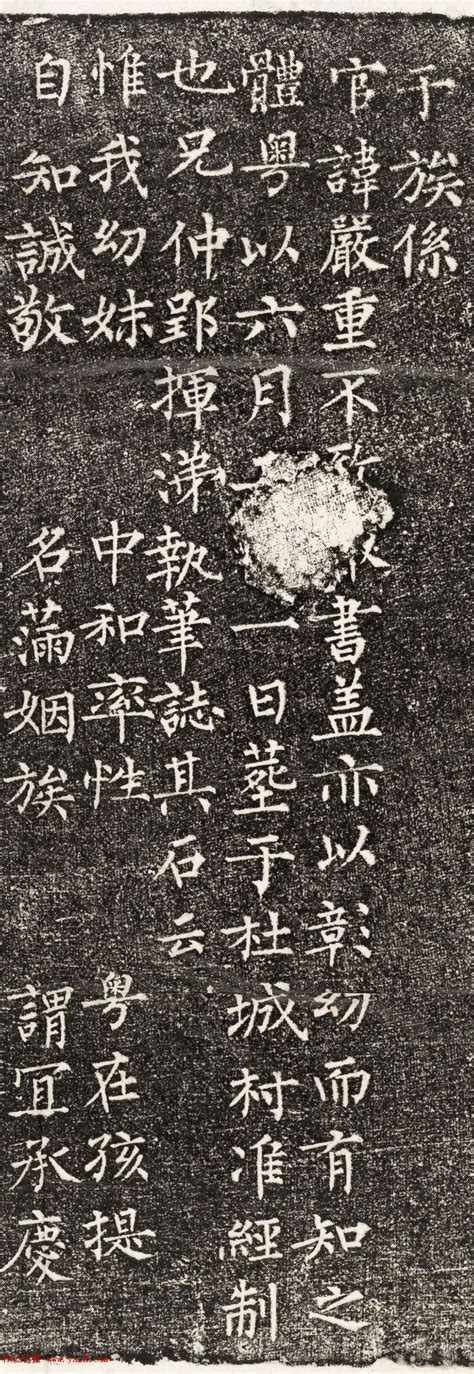 于族係
官諱嚴重不敢書盖亦以彰幼而有知之
體粵以六月一日塟于杜城村准經制
也兄仲郢揮涕執筆誌其石云
惟我幼妹 中和率性 粵在孩提
自知誠敬 名滿姻族 謂宜承慶